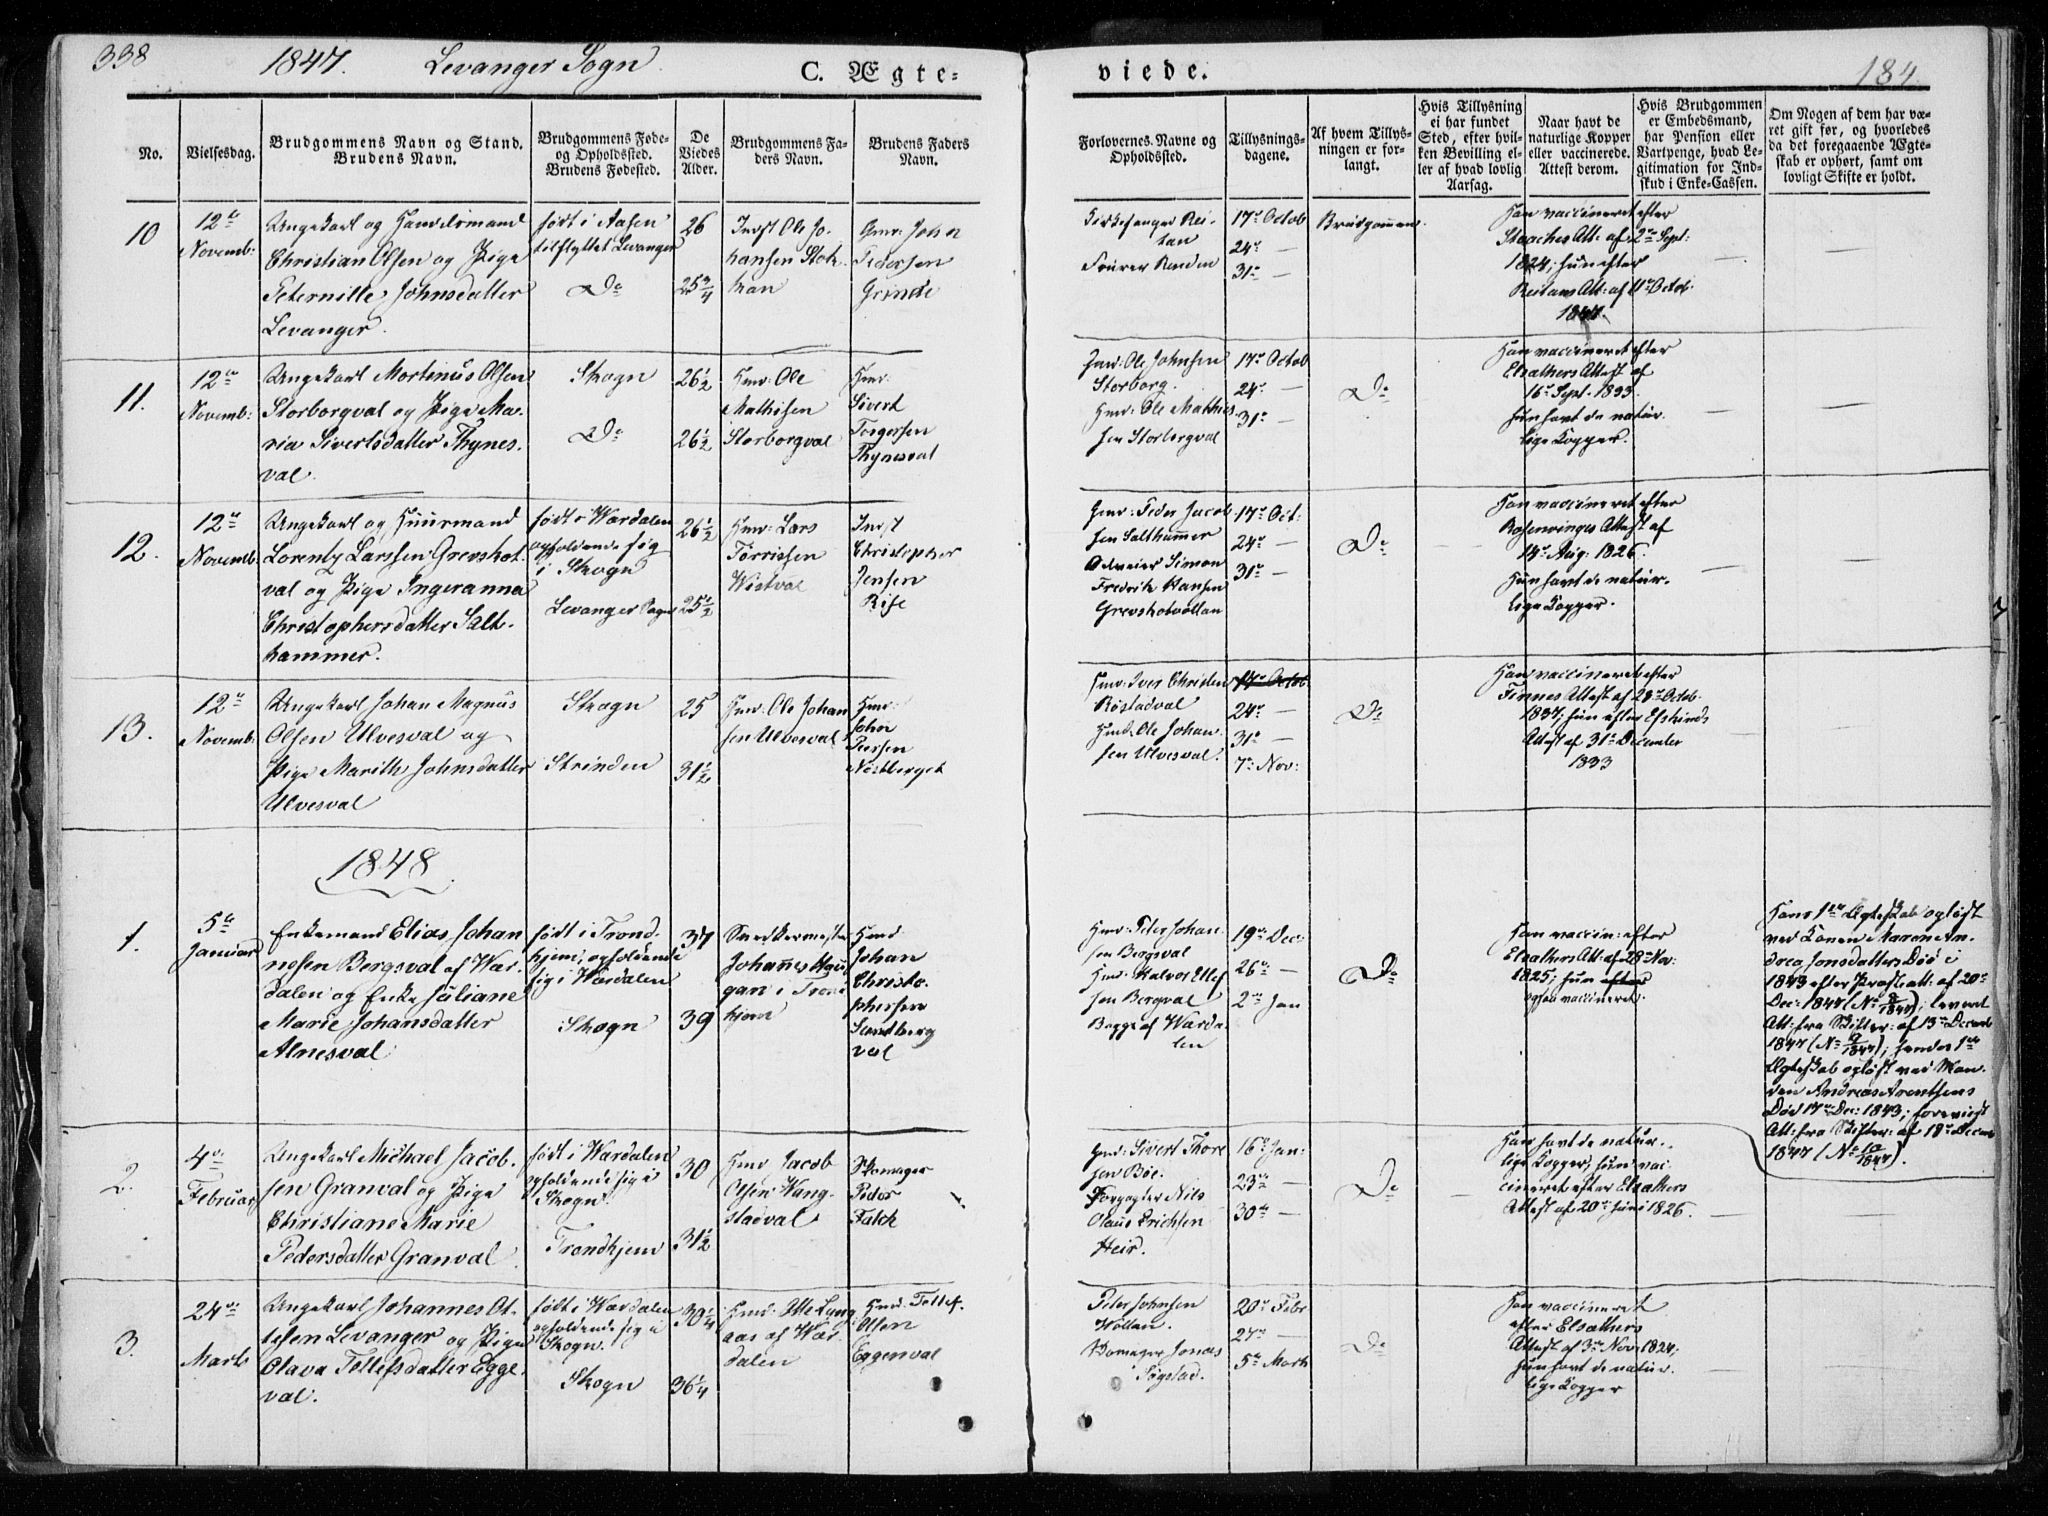 338
1847.
Levanger Sogn
C. Ægte=
viede.
184
No.
Vielsesdag.
Brudgommens Navn og Stand.
Brudens Navn.
Brudgommens Føde-
og Opholdssted.
Brudens Fødested.
De
Viedes
Alder.
Brudgommens Fa-
ders Navn.
Brudens Faders
Navn.
Forlovernes Navne og
Opholdssted.
Tillysnings-
dagene.
Af hvem Tillys-
ningen er for-
langt.
Hvis Tillysning
ei har fundet
Sted, efter hvil-
ken Bevilling el-
ler af hvad lovlig
Aarsag.
Naar havt de
naturlige Kopper
eller vaccinerede.
Attest derom.
Hvis Brudgommen
er Embedsmand,
har Pension eller
Vartpenge, hvad Le-
gitimation for Ind-
skud i Enke-Cassen.
Om Nogen af dem har væ-
ret gift før, og hvorledes
da det foregaaende Ægte-
skab er ophørt, samt om
lovligt Skifte er holdt.
10
12te
Novemb:
Ungekarl og Handelsmand
Christian Olsen og Pige
Peternille Johnsdatter
Levanger.
født i Aasen
tilflyttet Levanger
Do
26
25 3/4
Indst Ole Jo-
hansen Stok-
kan
Gmd: John
Pedersen
Grinde
Kirkesanger Rei-
tan
Fourer Renden
17de Octob
24de —
31te —
Brudgommen.
Han vaccineret efter
Staaches Att: af 2den Sept:
1824; hun efter
Reitans Att: af 11te Octob.
1847.
11.
12te
Novemb:
Ungekarl Mortinus Olsen
Storborgval og Pige Ma-
ria Sivertsdatter Thynes-
val.
Skogn
Do
26 1/2
26 1/2
Hmd: Ole
Mathisen
Storborgval
Hmd:
Sivert
Torgersen
Thynesval
Gmd: Ole Johnsen
Storborg.
Hmd: Ole Mathis
sen Storborgval
17de Octob
24de —
31te —
Do
Han vaccineret efter
Elsathers Attest af
16de Sept. 1833.
hun havt de natur-
lige Kopper.
12.
12te
Novemb:
Ungekarl og Huusmand
Lorentz Larssen Grevskot-
val og Pige Ingeranna
Christophersdatter Salt-
hammer.
født i Værdalen
opholdende sig
i Skogn
Levanger Sogn
26 1/2
25 1/2
Hmd: Lars
Tørrissen
Wistval
Indst
Christopher
Jensen
Rise
Gmd: Peder Jacob
sen Salthammer
Simon
Fredrik Hansen
Grevskotvollan
17de Oct:
24de —
31te —
Do
Han vaccineret efter
Rosenvinges Attest af
14de Aug: 1826.
Hun havt de natur-
lige Kopper.
13.
12te
Novemb:
Ungekarl Johan Magnus
Olsen Ulvesval og
Pige Marith Johnsdatter
Ulvesval
Skogn
Strinden
25
31 1/2
Hmd: Ole Johan
sen Ulvesval
Hmd:
John
Peersen
Nøstberget
Hmd: Iver Christen
Røstadval
Hmd: Ole Johan-
sen Ulvesval.
17de Octob:
24de —
31te —
7de Nov:
Do
Han vaccineret efter
Finnes Attest af 28de Octob.
1837; hun efter Eskinds
Attest af 31te December
1833
1848
1.
5te
Januar
Enkemand Elias Johan
nesen Bergsval af Vær-
dalen og Enke Juliane
Marie Johansdatter
Alnesval
født i Trond-
hjem, opholdende
sig i Værdalen
Skogn
37
39
Snedkermester
Johannes
i Trond
hjem
Hmd
Johan
Christo-
phersen
Sundberg
val
Hmd: Peter Johan-
sen Bergsval
Hmd: Halvor Ellef
sen Bergval
Begge af Værda-
len
19de Dec:
26de —
2den Jan
Do
Han vaccin: efter
Elsathers Att: af 28de Nov:
1825; hun efter
ogsaa vaccineret.
Hans 1ste Ægteskab opløst
ved Konen Maren An-
drea Jonsdatters Død i
1843 efter Præsteatt: af 20de
Dec: 1847 (No 8/1847); leveret
Att: fra Skifter: af 13de Decemb
1847 (No 9/1847); hendes 1ste
Ægteskab opløst ved Man-
den Andreas Arentsens
Død 17de Dec: 1843; foreviist
Att: fra Skifter: af 18de Decemb
1847 (No 10/1847).
2.
4de
Februar
Ungekarl Michael Jacob-
sen Granval og Pige
Christiane Marie
Pedersdatter Granval
født i Værdalen
opholdende sig i
Skogn.
Trondhjem
30
31 1/2
Hmd Jacob
Olsen Vang-
stadval
Skomager
Peder
Falck
Gmd: Sivert Thore
sen Bøe.
Forpagter Nils
Olaus Erichsen
Heir.
16de Jan:
23de —
30te —
Do
Han havt de natur-
lige Kopper; hun vac-
cineret efter Elsathers
Attest af 20de Juni 1826.
3.
24de
Marts
Ungekarl Johannes Ot-
tesen Levanger og Pige
Olava Tollefsdatter Egge-
val.
født i Værdalen
opholdende sig i
Skogn.
Skogn
30 1/4
36 1/4
Hmd: Otte Lyng
aas af Vær-
dalen
Hmd: Tollef
Olsen
Eggenval
Peter Johnsen
Wollan.
Skomager Jonas
Søgstad.
20de Febr
27de —
5te Marts
Do
Han vaccineret
efter Elsathers
Attest af 3die Nov: 1824;
hun havt de natur-
lige Kopper